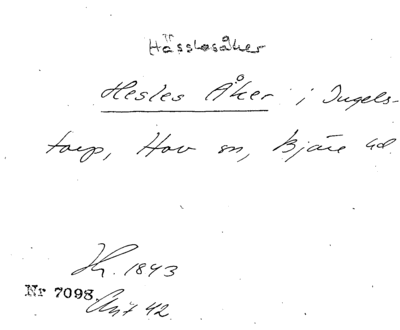 Hässlosåker
Hesles Åker i Ingels-
torp, Hov sn, Bjäre hd.
Jh. 1843
Nr 7098.
Akt 42